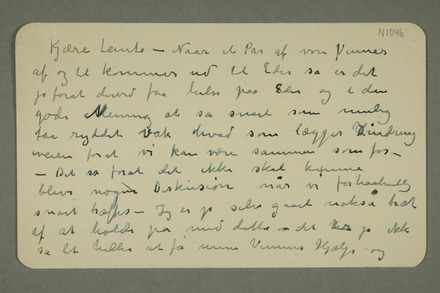 N1046
Kjære Lento – Naar et Par af vore Venner
af og til kommer ud til Eder så er det
jo forat derved faa hilse paa Eder og i den
gode Mening at så snart som mulig
faa ryddet væk hvad som lægger Hindring
veien forat vi kan være sammen som før –
– Det så forat det ikke skal komme
blive nogen Diskusion når vi forhaabentlig
snart træffes – Jeg er jo selv gaat også træt
af at holde på med dette så det jo ikke
så let heller at få mine Venners Hjælp og